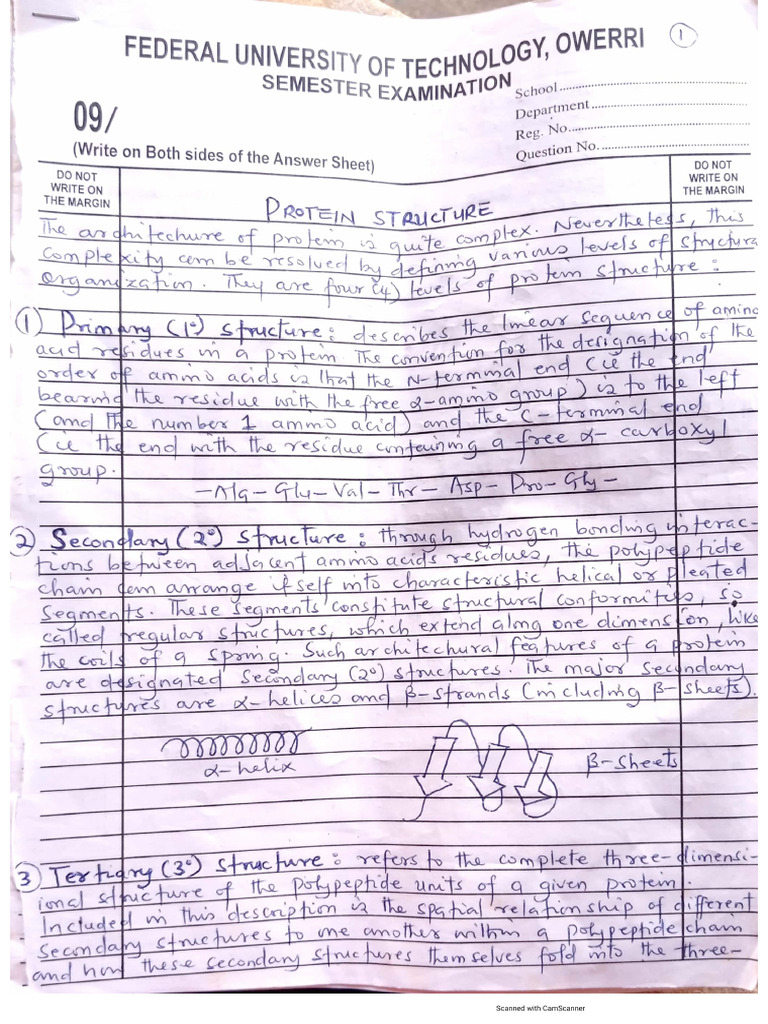 1
FEDERAL UNIVERSITY OF TECHNOLOGY, OWERRI
SEMESTER EXAMINATION
School
Department
Reg. No.
Question No.
09/
(Write on Both sides of the Answer Sheet)
DO NOT
WRITE ON
THE MARGIN
DO NOT
WRITE ON
THE MARGIN
PROTEIN STRUCTURE
The architechure of protein is quite complex. Nevertheless, this
complexity can be resolved by defining various levels of structura
organization. They are four (4) levels of protein structure:
1 Primary (1°) structure: describes the linear sequence of amino
acid residues in a protein. The convention for the designation of the
order of amino acids is that the N-terminal end (ie the end
bearing the residue with the free α-amino group) is to the left
(and the number 1 amino acid) and the C-terminal end
(ie the end with the residue containing a free α-carboxyl
group.
-Ala-Glu-Val-Thr-Asp-Pro-Gly-
2 Secondary (2°) structure: through hydrogen bonding interac-
tions between adjacent amino acids residues, the polypeptide
chain can arrange itself into characteristic helical or pleated
segments. These segments constitute structural conformities, so
called regular structures, which extend along one dimension, like
the coils of a spring. Such architechural features of a protein
are designated secondary (2°) structures. The major secondary
structures are α-helices and β-strands (including β-sheets).
α-helix
β-sheets
3 Tertiary (3°) structure: refers to the complete three-dimensi-
ional structure of the polypeptide units of a given protein.
Included in this description is the spatial relationship of different
secondary structures to one another within a polypeptide chain
and how these secondary structures themselves fold into the three-
Scanned with CamScanner